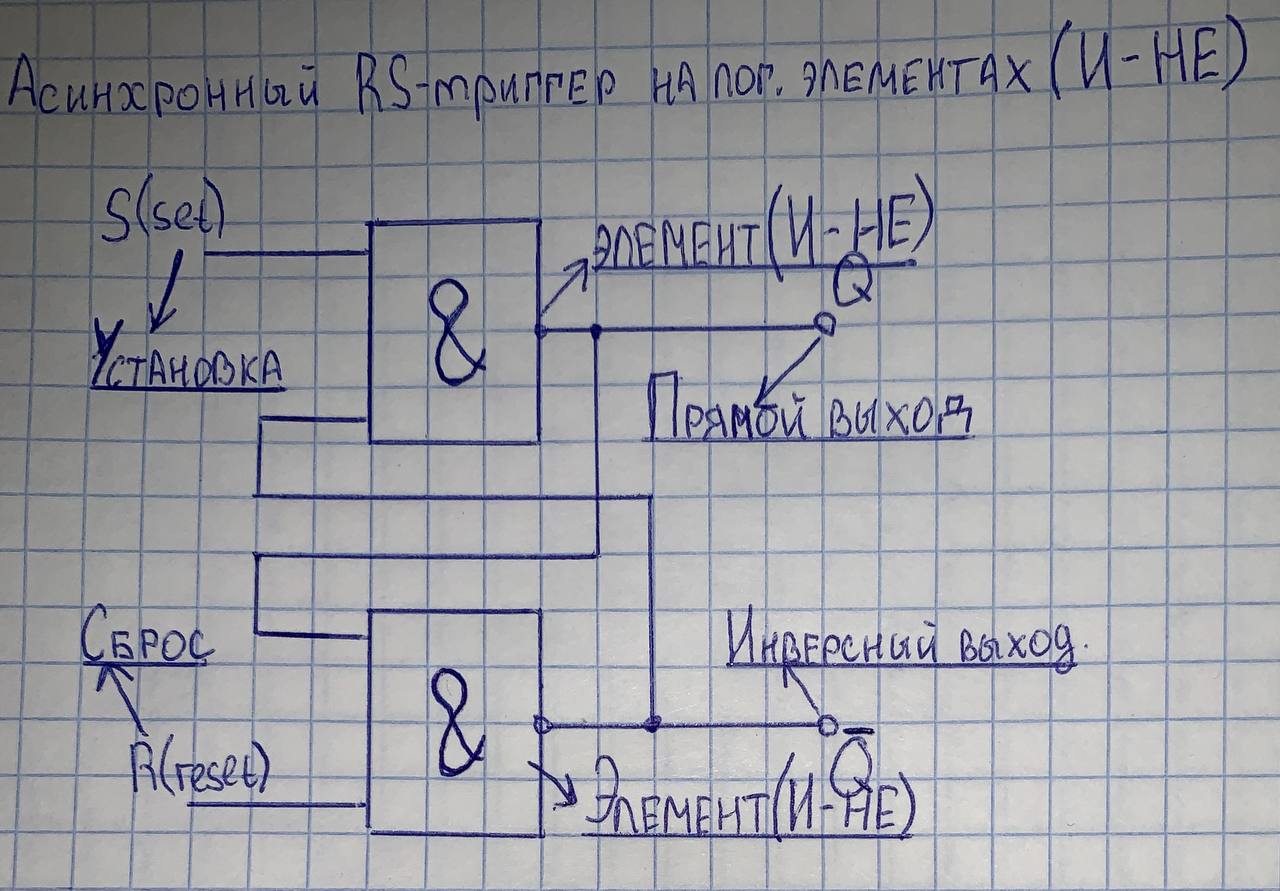 Асинхронный RS-триггер на лог. элементах (И-НЕ)
S(set)
Установка
&
элемент (И-НЕ)
Q
Прямой выход
Сброс
R(reset)
&
Инверсный выход.
Q̅
Элемент (И-НЕ)